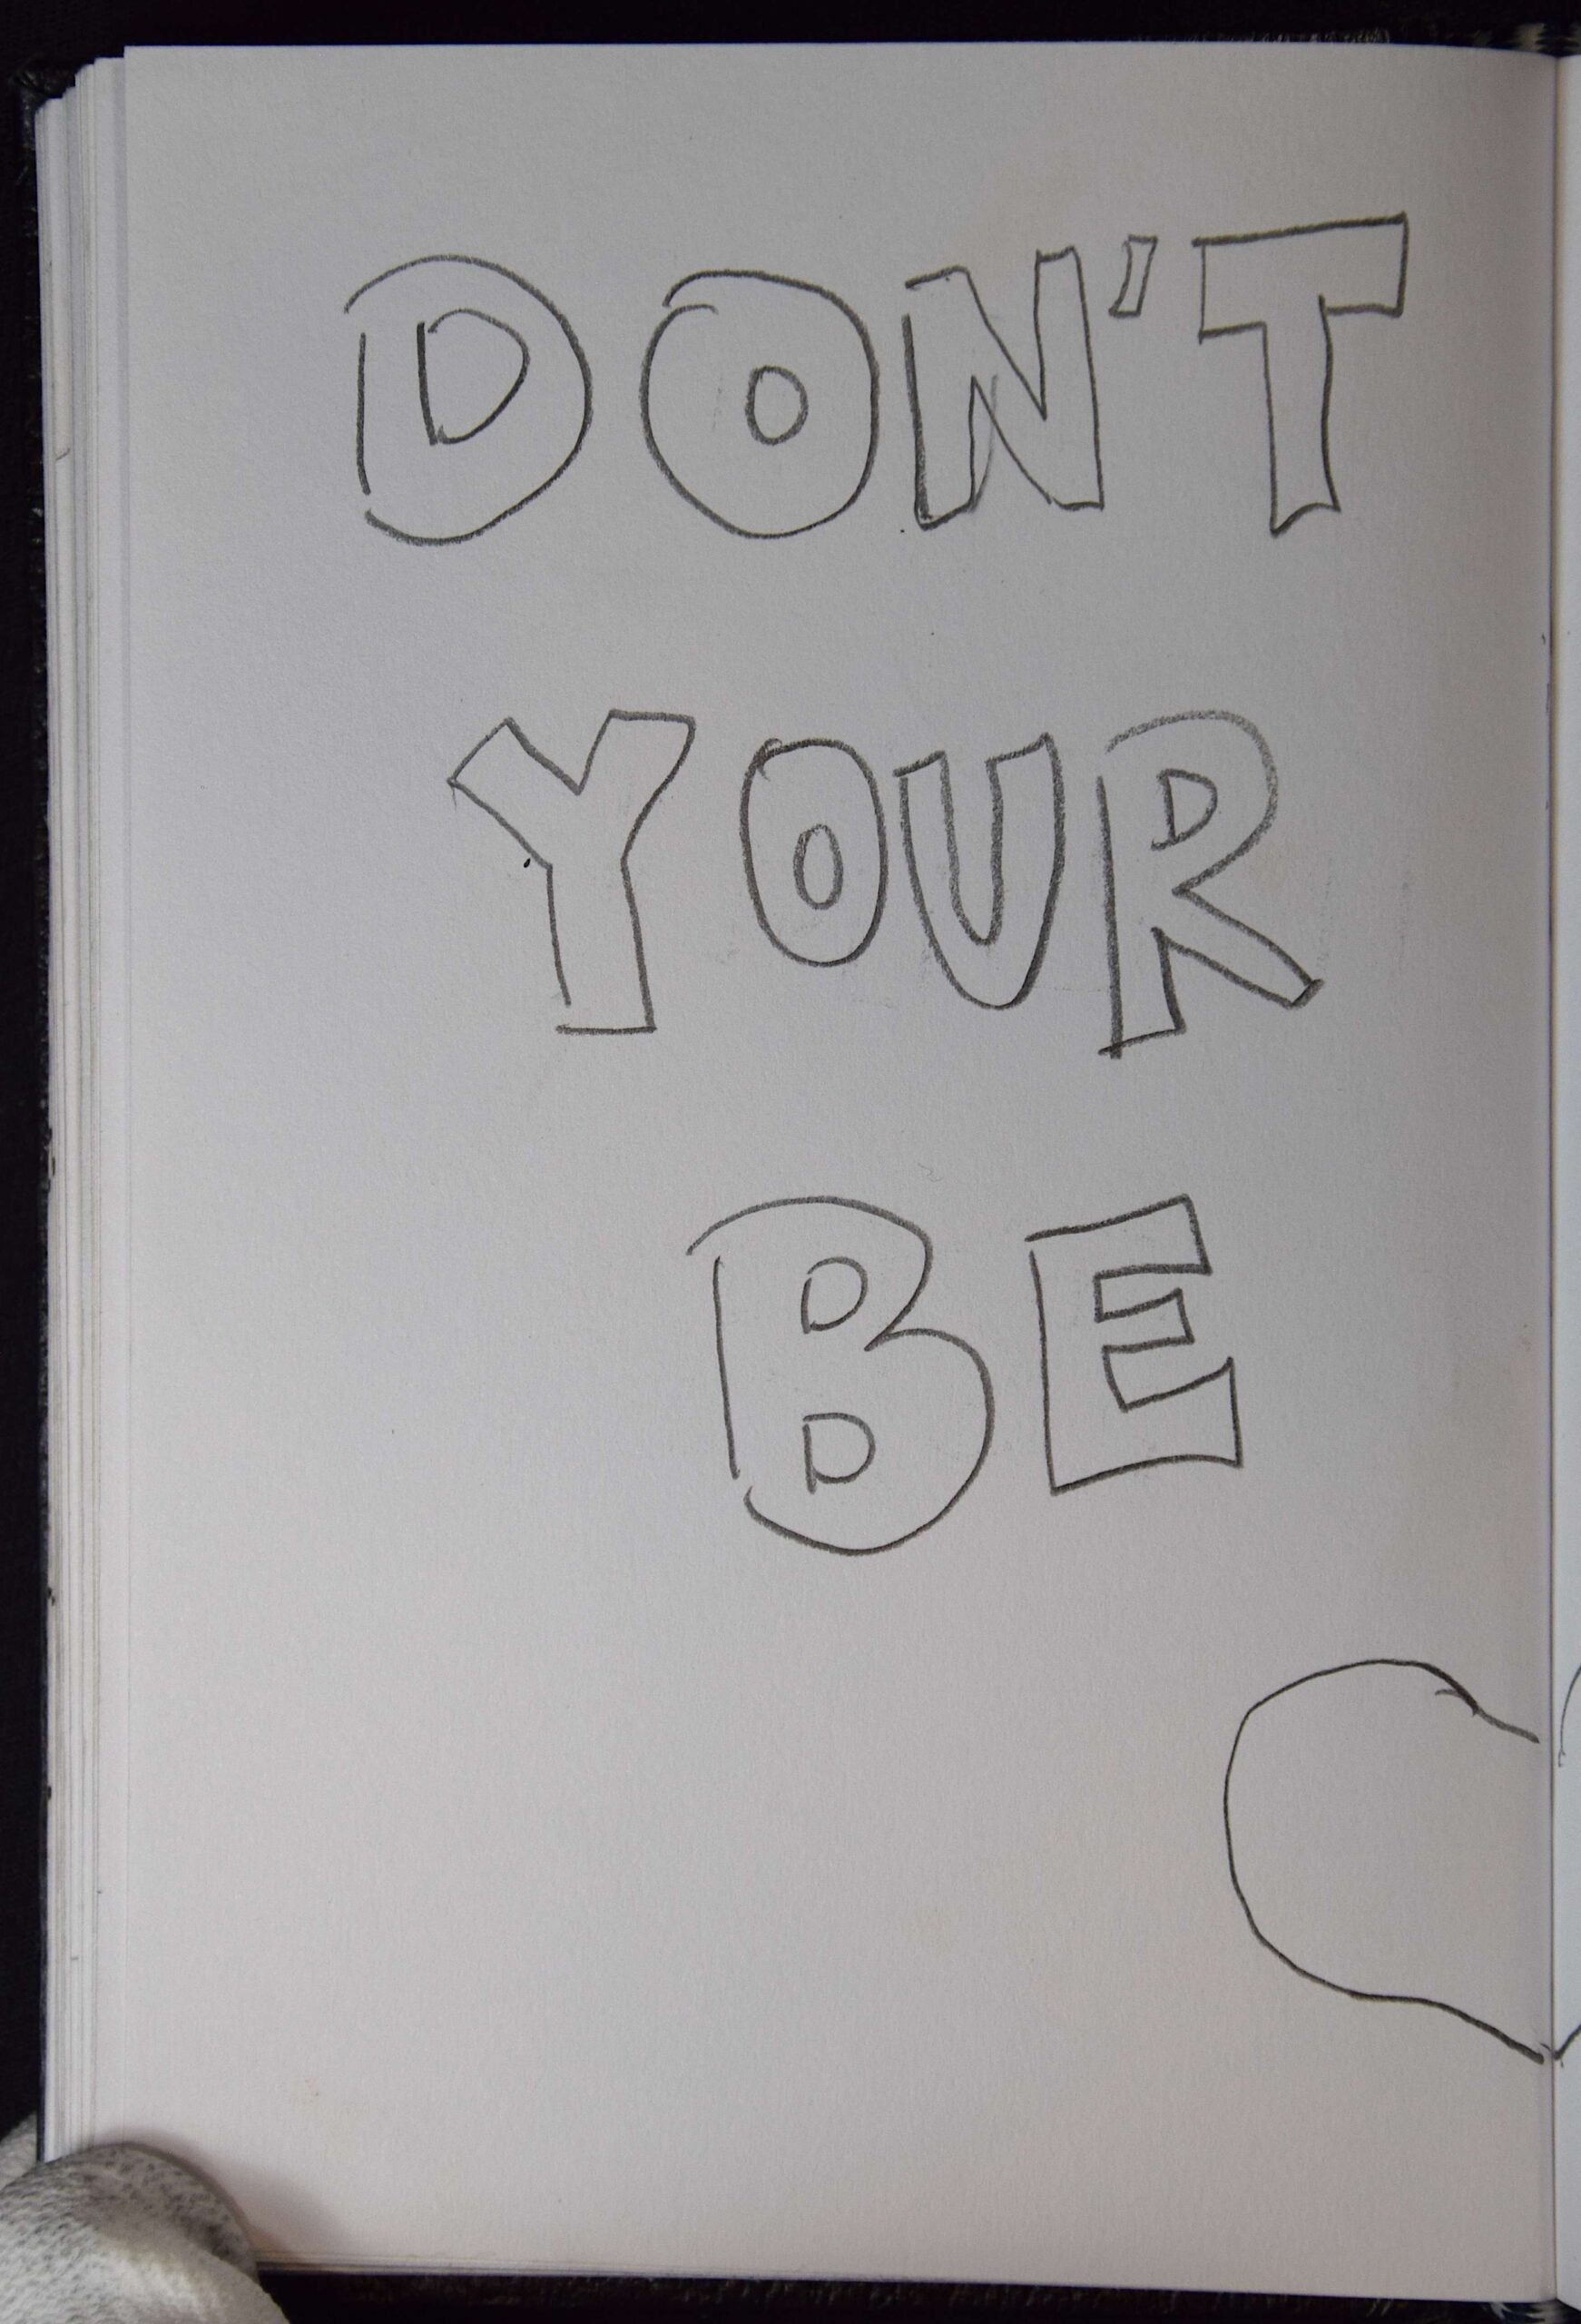 DON'T
YOUR
BE